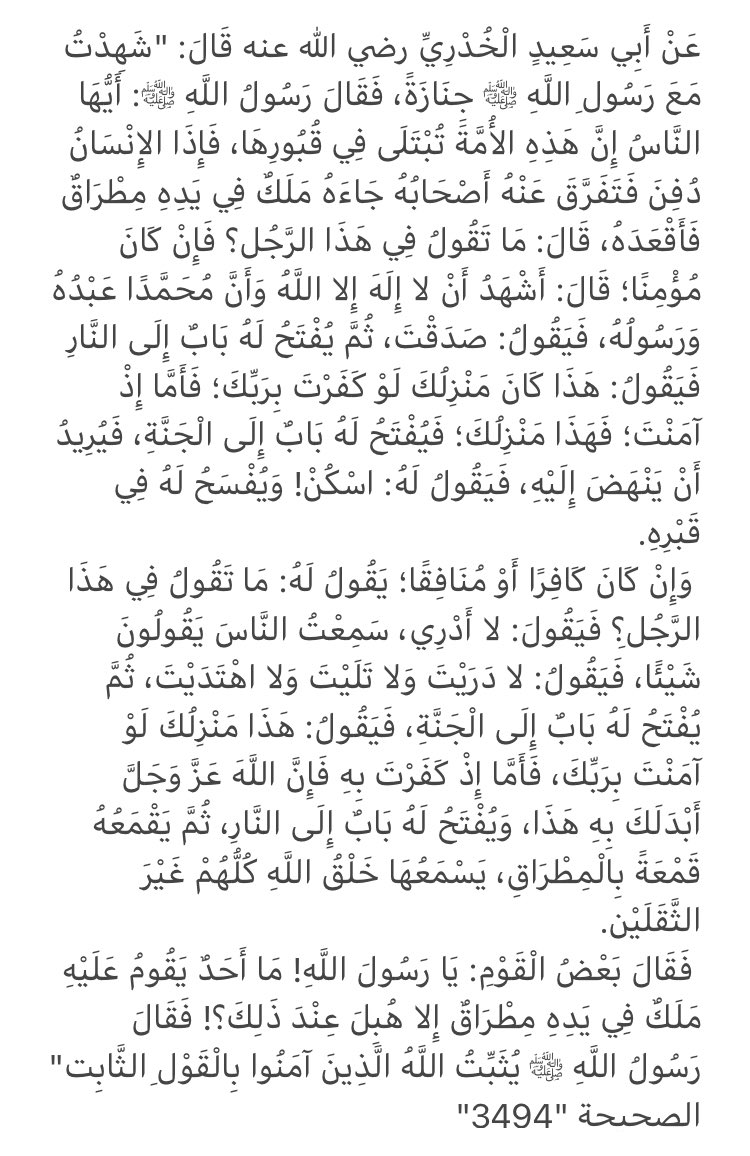 عَنْ أَبِي سَعِيدٍ الْخُدْرِيِّ رضي الله عنه قَالَ: "شَهِدْتُ
مَعَ رَسُولِ اللَّهِ ﷺ جِنَازَةً، فَقَالَ رَسُولُ اللَّهِ ﷺ: أَيُّهَا
النَّاسُ إِنَّ هَذِهِ الأُمَّةَ تُبْتَلَى فِي قُبُورِهَا، فَإِذَا الإِنْسَانُ
دُفِنَ فَتَفَرَّقَ عَنْهُ أَصْحَابُهُ جَاءَهُ مَلَكٌ فِي يَدِهِ مِطْرَاقٌ
فَأَقْعَدَهُ، قَالَ: مَا تَقُولُ فِي هَذَا الرَّجُلِ؟ فَإِنْ كَانَ
مُؤْمِنًا؛ قَالَ: أَشْهَدُ أَنْ لا إِلَهَ إِلا اللَّهُ وَأَنَّ مُحَمَّدًا عَبْدُهُ
وَرَسُولُهُ، فَيَقُولُ: صَدَقْتَ، ثُمَّ يُفْتَحُ لَهُ بَابٌ إِلَى النَّارِ
فَيَقُولُ: هَذَا كَانَ مَنْزِلُكَ لَوْ كَفَرْتَ بِرَبِّكَ؛ فَأَمَّا إِذْ
آمَنْتَ؛ فَهَذَا مَنْزِلُكَ؛ فَيُفْتَحُ لَهُ بَابٌ إِلَى الْجَنَّةِ، فَيُرِيدُ
أَنْ يَنْهَضَ إِلَيْهِ، فَيَقُولُ لَهُ: اسْكُنْ! وَيُفْسَحُ لَهُ فِي
قَبْرِهِ.
وَإِنْ كَانَ كَافِرًا أَوْ مُنَافِقًا؛ يَقُولُ لَهُ: مَا تَقُولُ فِي هَذَا
الرَّجُلِ؟ فَيَقُولَ: لا أَدْرِي، سَمِعْتُ النَّاسَ يَقُولُونَ
شَيْئًا، فَيَقُولُ: لا دَرَيْتَ وَلا تَلَيْتَ وَلا اهْتَدَيْتَ، ثُمَّ
يُفْتَحُ لَهُ بَابٌ إِلَى الْجَنَّةِ، فَيَقُولُ: هَذَا مَنْزِلُكَ لَوْ
آمَنْتَ بِرَبِّكَ، فَأَمَّا إِذْ كَفَرْتَ بِهِ فَإِنَّ اللَّهَ عَزَّ وَجَلَّ
أَبْدَلَكَ بِهِ هَذَا، وَيُفْتَحُ لَهُ بَابٌ إِلَى النَّارِ، ثُمَّ يَقْمَعُهُ
قَمْعَةً بِالْمِطْرَاقِ، يَسْمَعُهَا خَلْقُ اللَّهِ كُلُّهُمْ غَيْرَ
الثَّقَلَيْنِ.
فَقَالَ بَعْضُ الْقَوْمِ: يَا رَسُولَ اللَّهِ! مَا أَحَدٌ يَقُومُ عَلَيْهِ
مَلَكٌ فِي يَدِهِ مِطْرَاقٌ إِلا هُبِلَ عِنْدَ ذَلِكَ؟! فَقَالَ
رَسُولُ اللَّهِ ﷺ يُثَبِّتُ اللَّهُ الَّذِينَ آمَنُوا بِالْقَوْلِ الثَّابِتِ"
الصحيحة "3494"